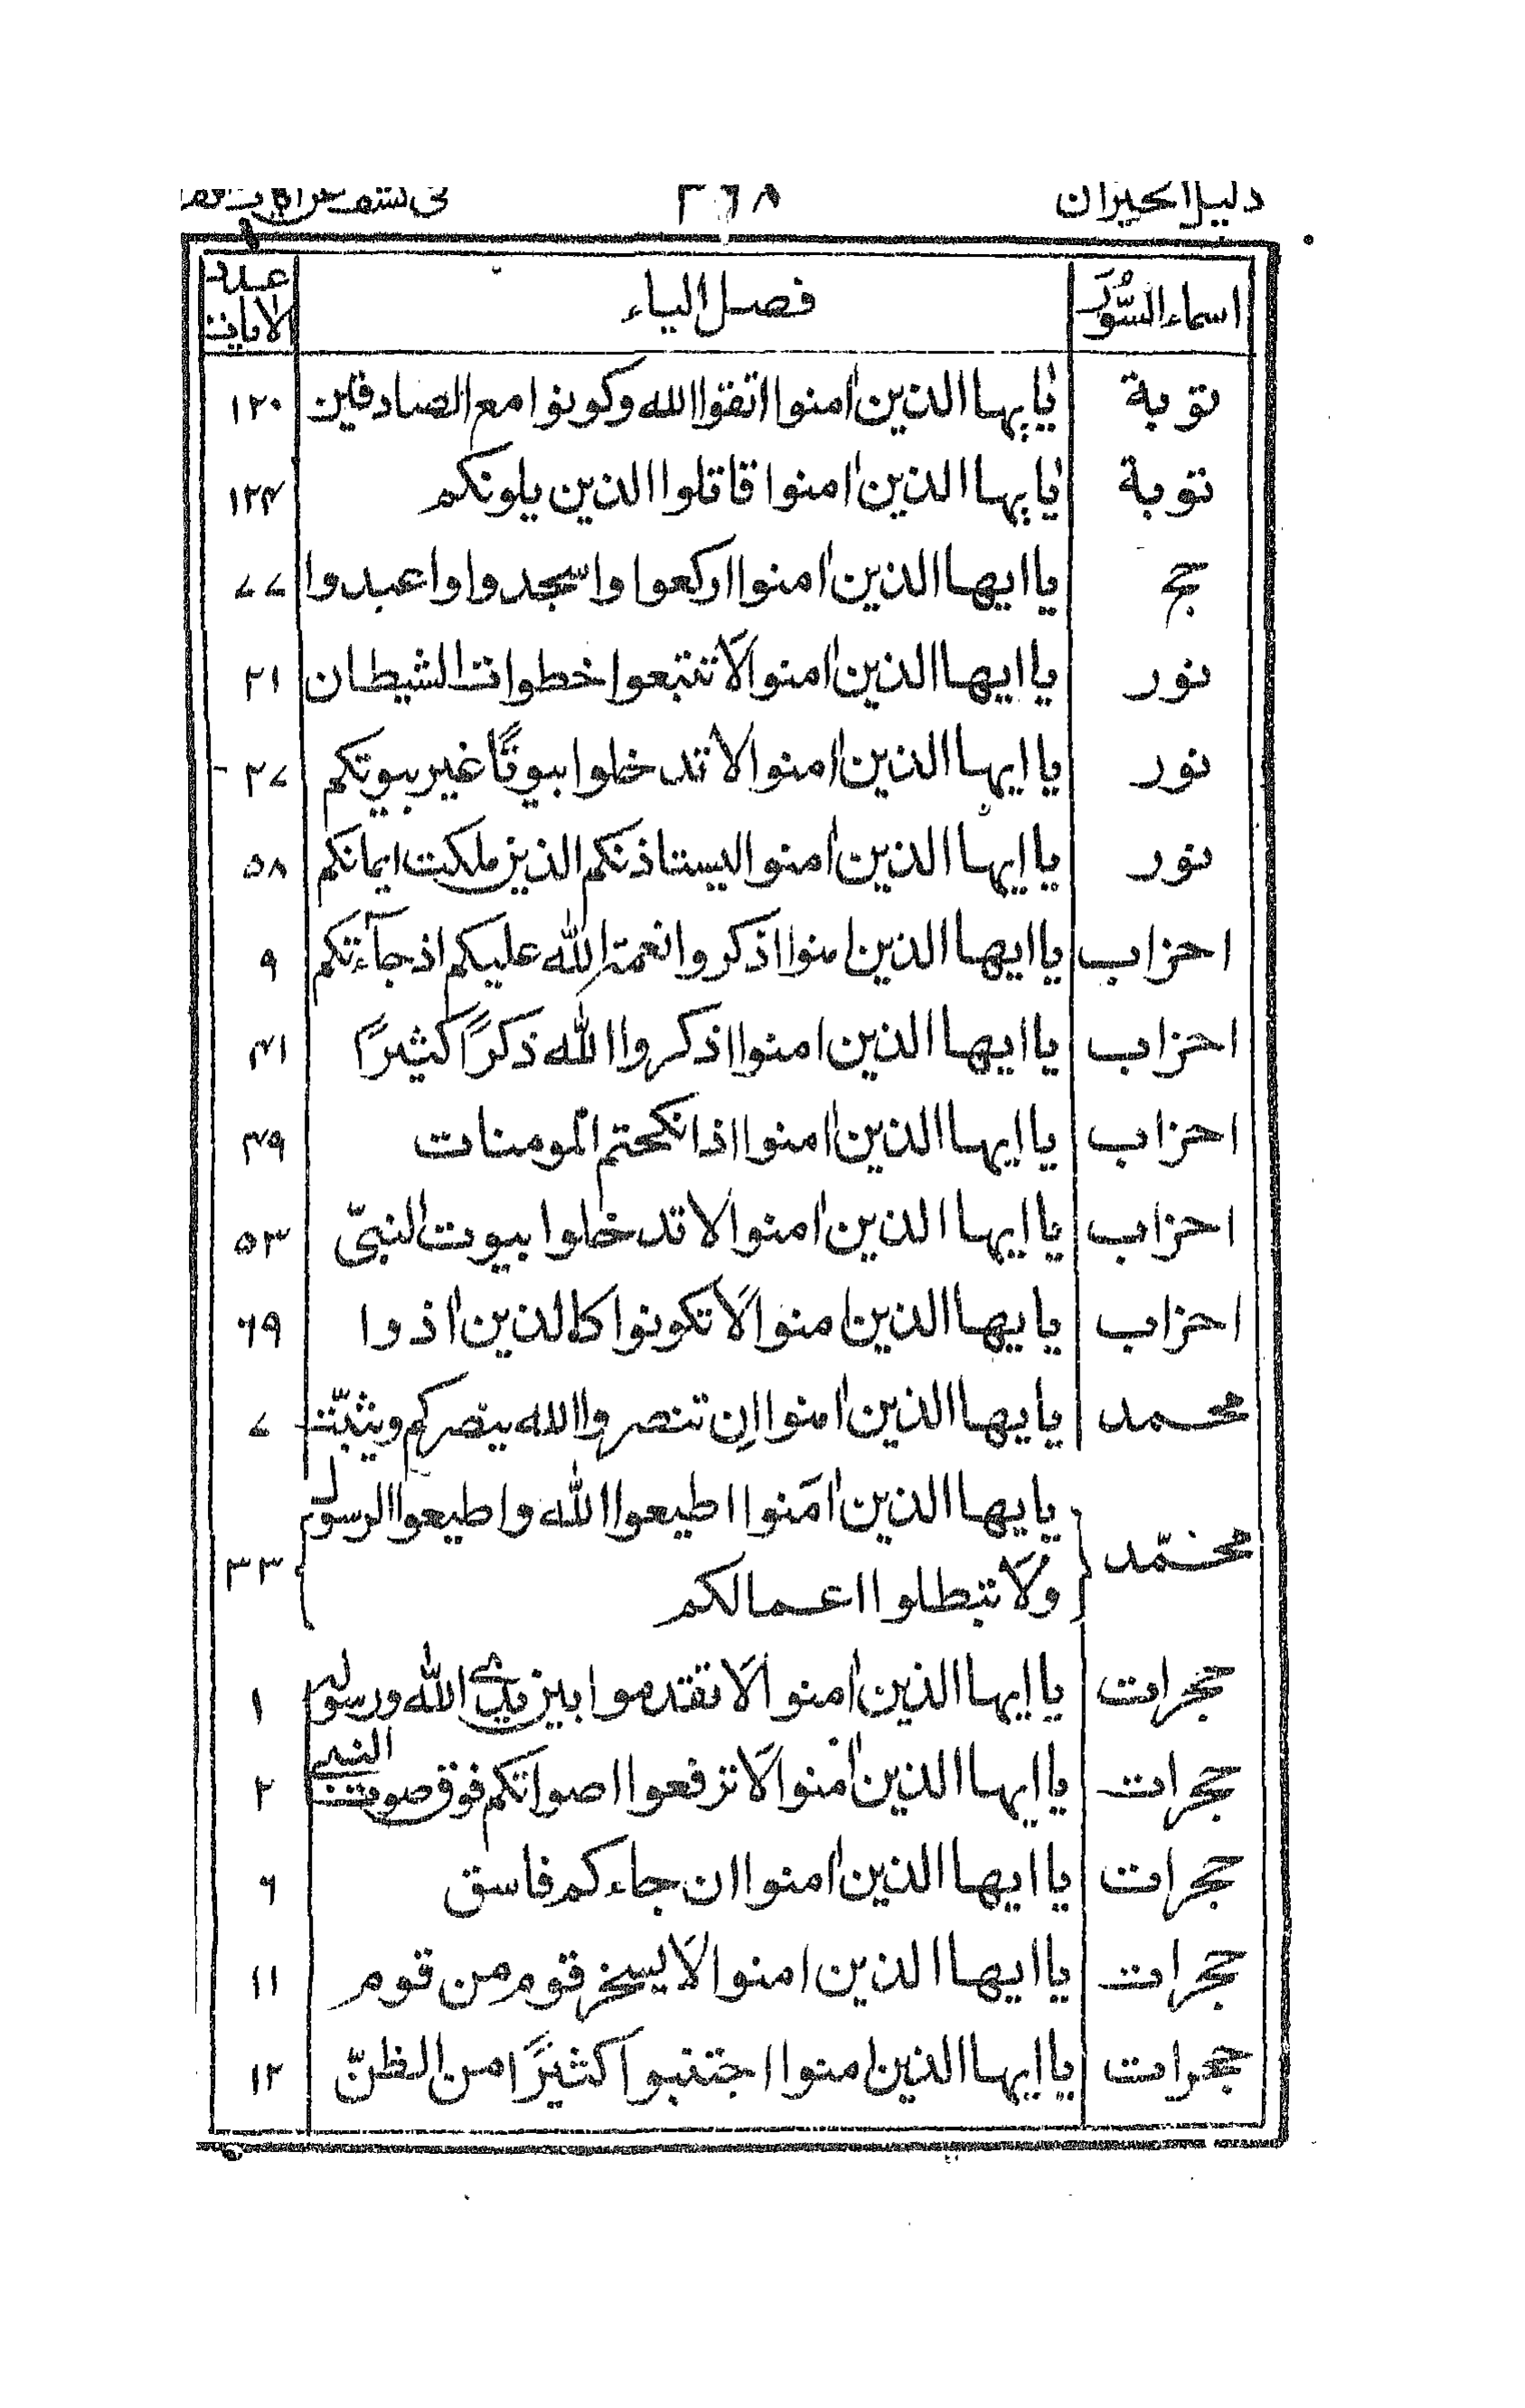 دليل الحيران ٣٦٨ فى
اسماء السُّوَر فصل الياء عدد الايات
توبة يٰايها الذين اٰمنوا اتقوا الله وكونوا مع الصادقين ١٢٠
توبة يٰايها الذين اٰمنوا قاتلوا الذين يلونكم ١٢٤
حج يا ايها الذين اٰمنوا اركعوا واسجدوا واعبدوا ٧٧
نور يا ايها الذين اٰمنوا لَا تتبعوا خطوات الشيطان ٢١
نور يا ايها الذين اٰمنوا لا تدخلوا بيوتًا غير بيوتكم ٢٧
نور يا ايها الذين اٰمنوا ليستاذنكم الذين ملكت ايمانكم ٥٨
احزاب يا ايها الذين اٰمنوا اذكروا نعمة الله عليكم اذ جآءتكم ٩
احزاب يا ايها الذين امنوا اذكروا الله ذكرًا كثيرًا ٤١
احزاب يا ايها الذين اٰمنوا اذا نكحتم المومنات ٤٩
احزاب يا ايها الذين اٰمنوا لا تدخلوا بيوت النبىّ ٥٣
احزاب يا يها الذين اٰمنوا لَا تكونوا كالذين اٰذوا ٦٩
محمد يا يها الذين اٰمنوا اِن تنصروا الله ينصركم ويثبّت ٧
محمّد يا يها الذين اٰمَنوا اطيعوا الله واطيعوا الرسول ٣٣
ولَا تبطلوا اعمالكم
حجرات يا ايها الذين اٰمنوا لَا تقدموا بين يدى الله ورسوله ١
حجرات يا ايها الذين اٰمنوا لَا ترفعوا اصواتكم فوق صوت النبى ٢
حجرات يا ايها الذين اٰمنوا ان جاءكم فاسق ٦
حجرات يا ايها الذين امنوا لَا يسخر قوم من قوم ١١
حجرات يا ايها الذين اٰمنوا اجتنبوا كثيرًا من الظنّ ١٢